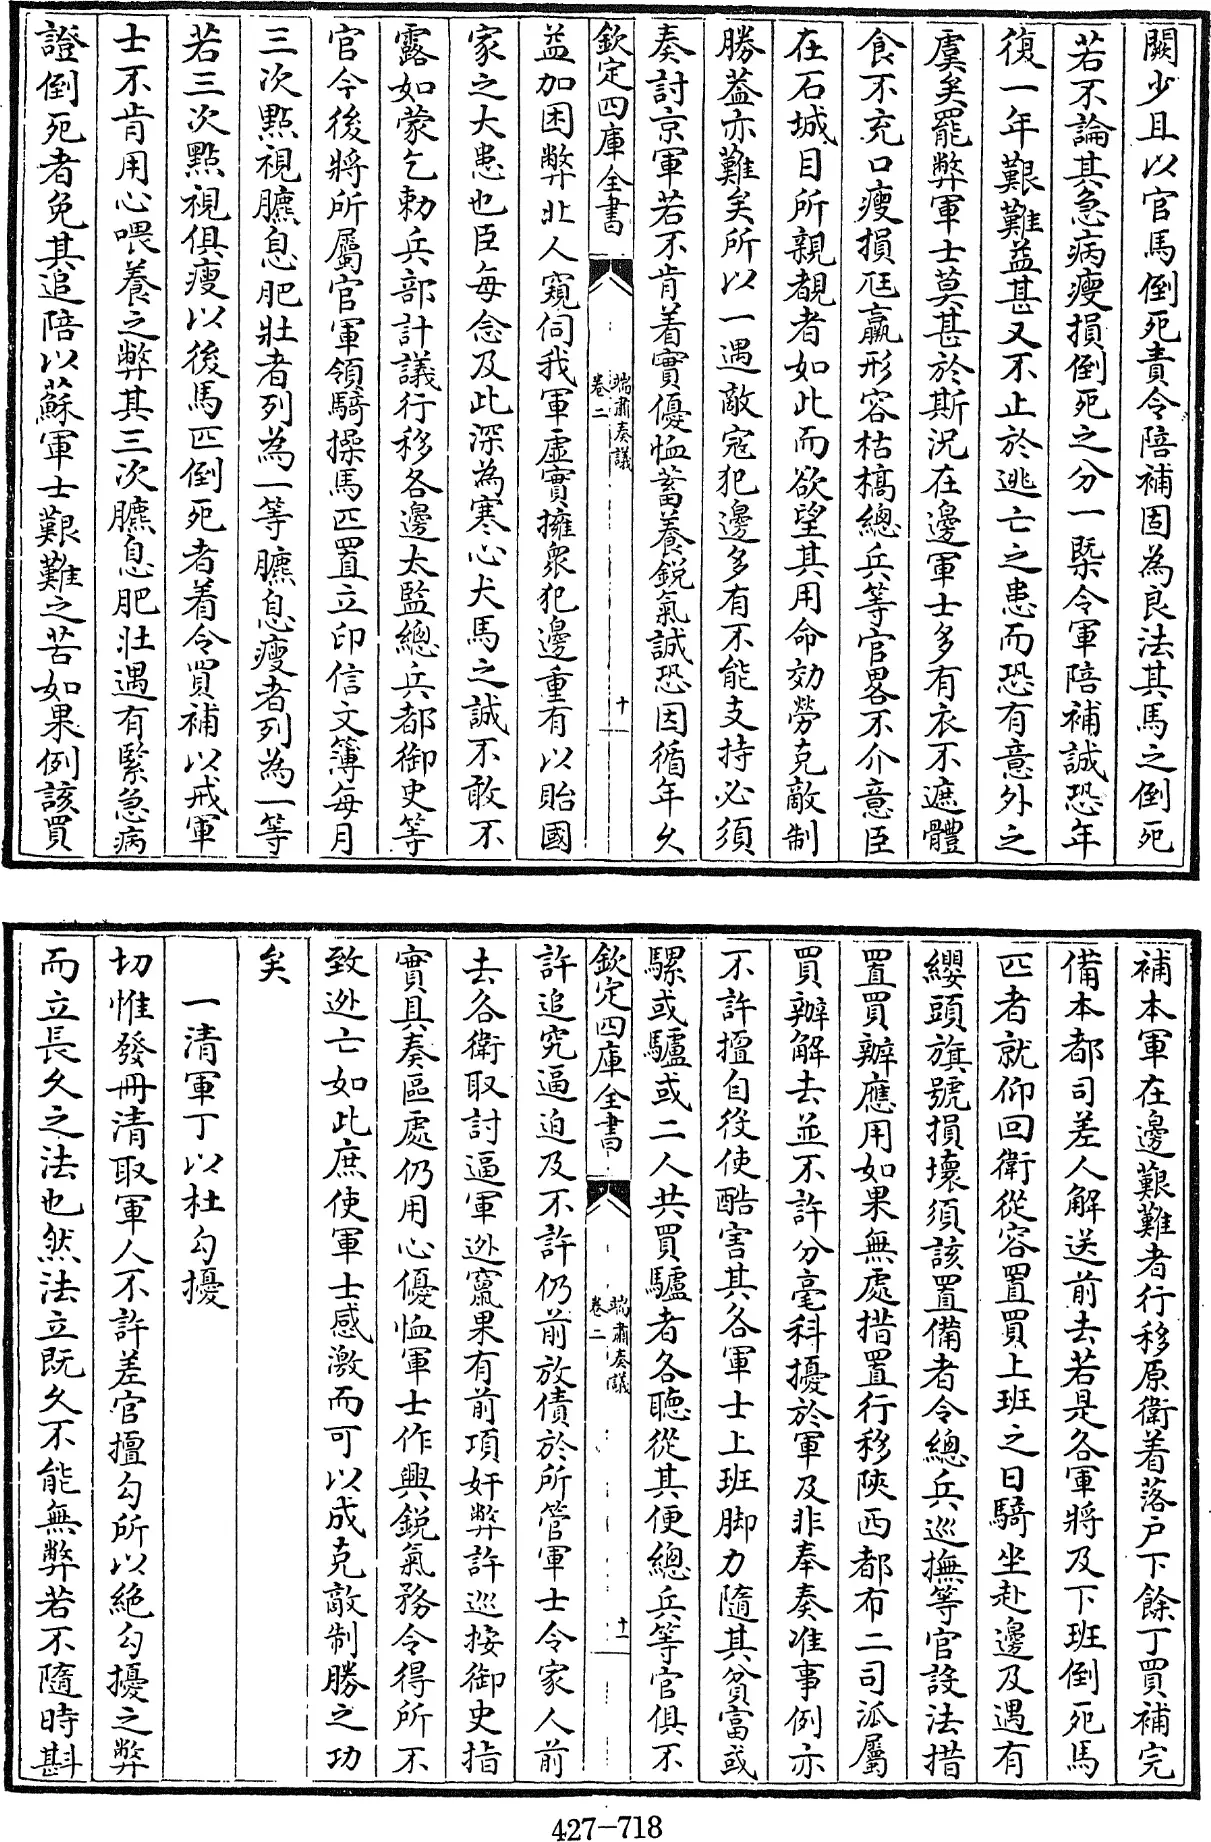 闕少且以官馬倒死責令陪補固為良法其馬之倒死
若不論其急病瘦損倒死之分一槩令軍陪補誠恐年
復一年艱難益甚又不止於逃亡之患而恐有意外之
虞矣罷弊軍士莫甚於斯況在邊軍士多有衣不遮體
食不充口瘦損尫羸形容枯槁總兵等官畧不介意臣
在石城目所親覩者如此而欲望其用命効勞克敵制
勝蓋亦難矣所以一遇敵寇犯邊多有不能支持必須
奏討京軍若不肯着實優恤蓄養鋭氣誠恐因循年久
欽定四庫全書
端肅奏議
卷二
十
益加困弊北人窺伺我軍虛實擁衆犯邊重有以貽國
家之大患也臣每念及此深為寒心犬馬之誠不敢不
露如蒙乞勅兵部計議行移各邊太監總兵都御史等
官今後將所屬官軍領騎操馬匹置立印信文簿每月
三次點視臕息肥壯者列為一等臕息瘦者列為一等
若三次點視俱瘦以後馬匹倒死者着令買補以戒軍
士不肯用心喂養之弊其三次臕息肥壯遇有緊急病
證倒死者免其追陪以蘇軍士艱難之苦如果例該買
補本軍在邊艱難者行移原衛着落户下餘丁買補完
備本都司差人解送前去若是各軍將及下班倒死馬
匹者就仰回衛從容置買上班之日騎坐赴邊及遇有
纓頭旗號損壞須該置備者令總兵巡撫等官設法措
置買辦應用如果無處措置行移陜西都布二司派屬
買辦解去並不許分毫科擾於軍及非奉奏准事例亦
不許擅自役使酷害其各軍士上班脚力隨其貧富或
騾或驢或二人共買驢者各聽從其便總兵等官俱不
欽定四庫全書
端肅奏議
卷二
十一
許追究逼迫及不許仍前放債於所管軍士令家人前
去各衛取討逼軍迯竄果有前項奸弊許巡按御史指
實具奏區處仍用心優恤軍士作興鋭氣務令得所不
致迯亡如此庶使軍士感激而可以成克敵制勝之功
矣
一清軍丁以杜勾擾
切惟發冊清取軍人不許差官擅勾所以絶勾擾之弊
而立長久之法也然法立既久不能無弊若不隨時斟
427-718